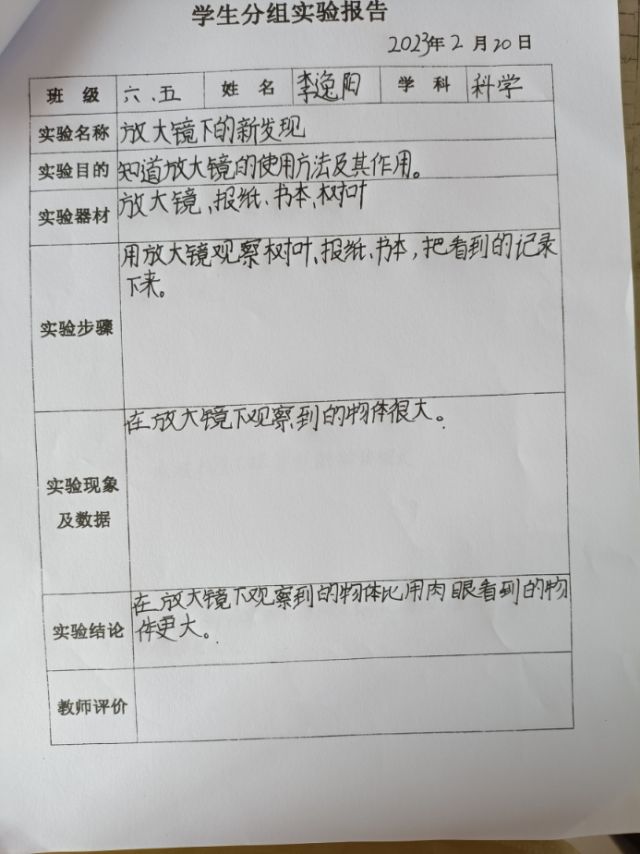 学生分组实验报告
2023年2月20日
班级 六.五 姓名 李逸阳 学科 科学
实验名称 放大镜下的新发现
实验目的 知道放大镜的使用方法及其作用。
实验器材 放大镜、报纸、书本、树叶
用放大镜观察树叶、报纸、书本,把看到的记录
下来。
实验步骤
在放大镜下观察到的物体很大。
实验现象
及数据
在放大镜下观察到的物体比用肉眼看到的物
实验结论 件更大。
教师评价